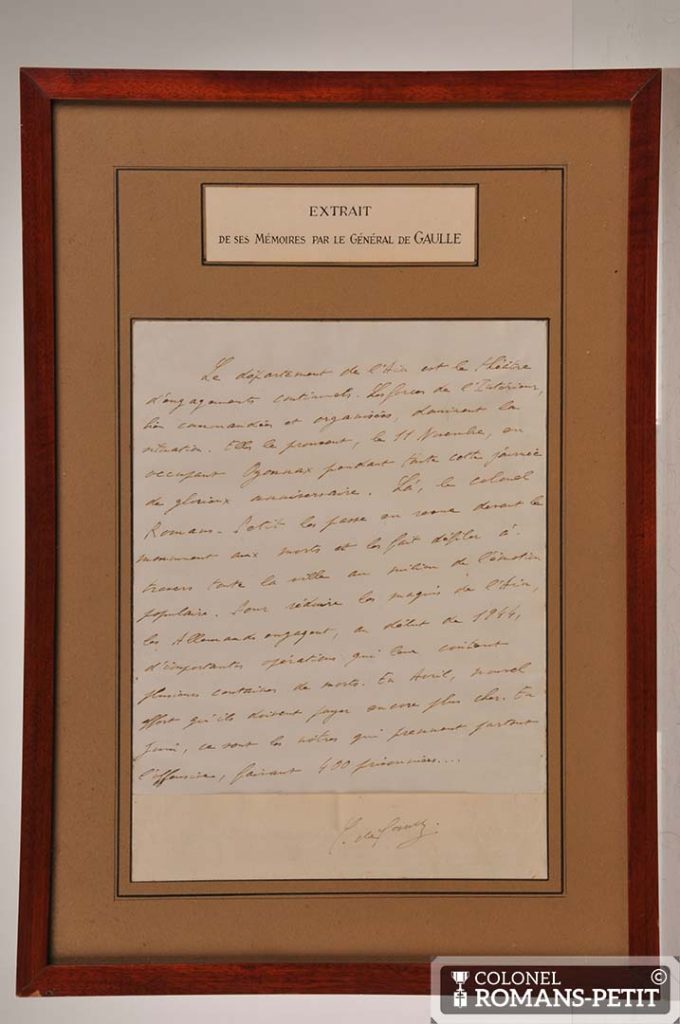 EXTRAIT
DE SES MÉMOIRES PAR LE GÉNÉRAL DE GAULLE
Le département de l'Ain est le théâtre
d'engagements continuels. Les forces de l'Intérieur,
bien commandées et organisées, dominent la
situation. Elles le prouvent, le 11 Novembre, en
occupant Oyonnax pendant toute cette journée
de glorieux anniversaire. Là, le colonel
Romans-Petit les passe en revue devant le
monument aux morts et les fait défiler à
travers toute la ville au milieu de l'émotion
populaire. Pour réduire les maquis de l'Ain,
les Allemands engagent, au début de 1944,
d'importantes opérations qui leur coûtent
plusieurs centaines de morts. En Avril, nouvel
effort qu'ils doivent payer encore plus cher. En
Juin, ce sont les nôtres qui prennent partout
l'offensive, faisant 400 prisonniers....
C. de Gaulle.
COLONEL ©
ROMANS-PETIT